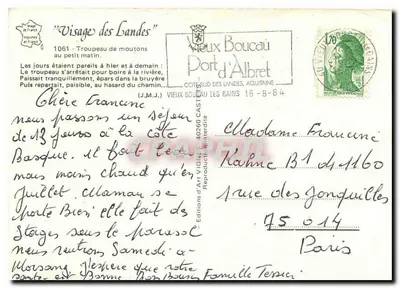 "Visage des Landes"
1061 - Troupeau de moutons
au petit matin.
Les jours étaient pareils à hier et à demain :
Le troupeau s'arrêtait pour boire à la rivière,
Paissait tranquillement, épars dans la bruyère
Puis reparaît, paisible, au hasard du chemin.
(J.M.J.)
Vieux Boucau
Port
d'Albret
COTE SUD DES LANDES, AQUITAINE
VIEUX BOUCAU LES BAINS 16-8-84
1,70
Chère Francine
nous passons un séjour
de 13 jours à la côte
Basque. il fait beau
mais moins chaud qu'en
juillet. Maman se
porte Bien elle fait des
sous le parasol
nous rentrons Samedi à
Morsang J'espère que votre
santé est Bonne. Bons Baisers Famille
Madame Francine
Kahne B1 d1160
1 rue des Jonquilles
75 014
Paris
Editions d'Art 40260 CASTETS
Reproduction interdite